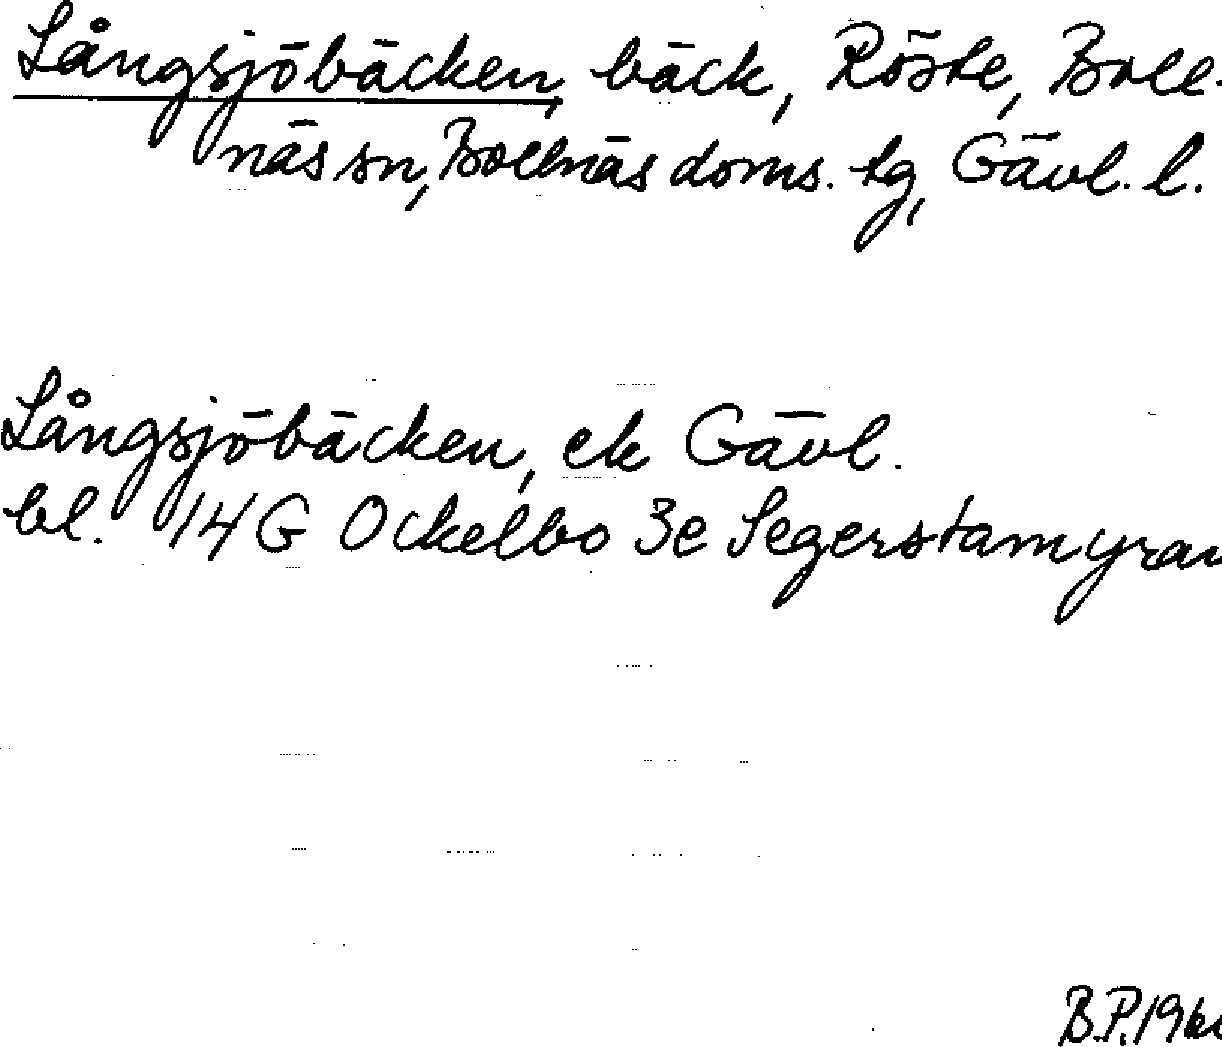 Långsjöbäcken, bäck, Röste, Boll-
näs sn, Bollnäs doms. tg, Gävl. l.
Långsjöbäcken, ek Gävl.
bl. 14G Ockelbo 3e Segerstamyran
B.P.